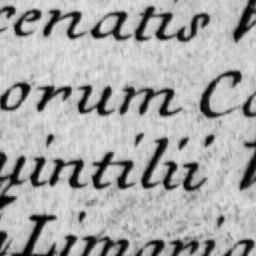 cenatis
orum Co
uintilii
Limaria